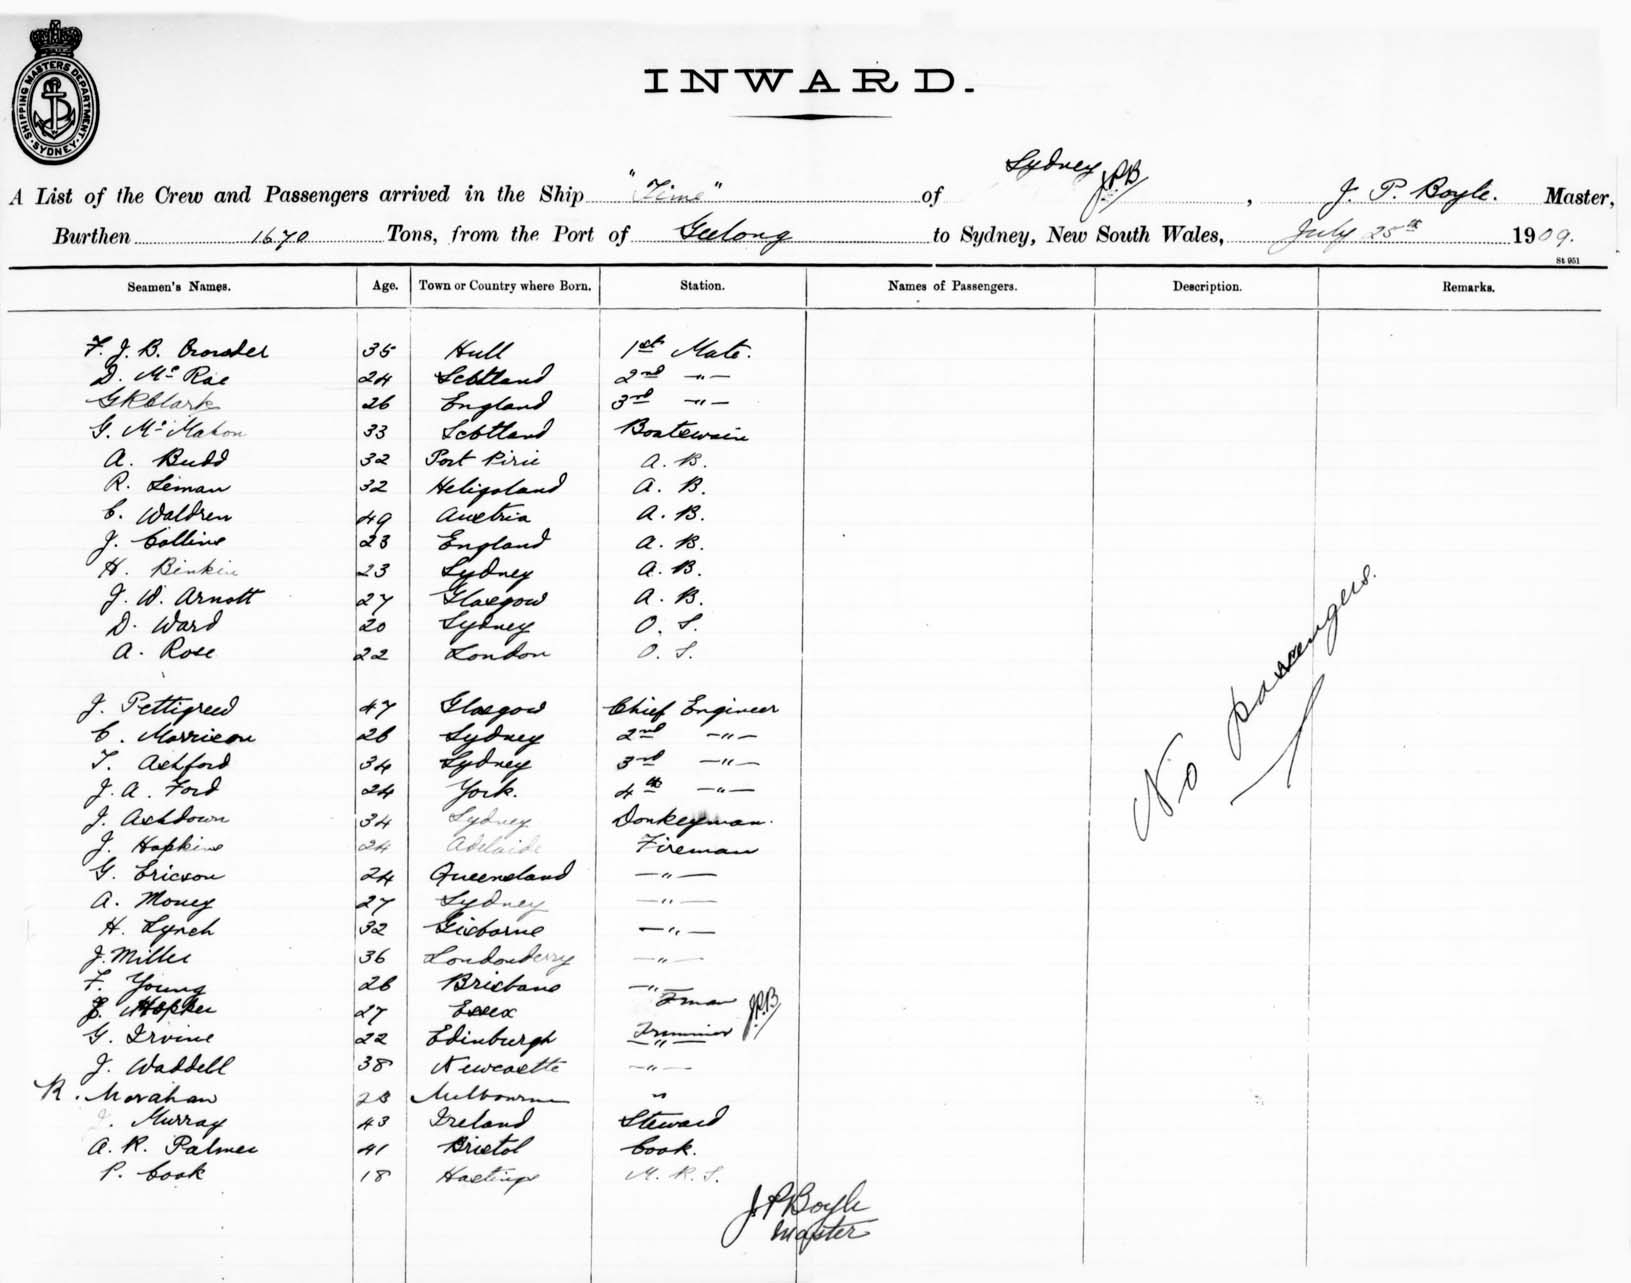 SHIPPING MASTERS DEPARTMENT. SYDNEY.
INWARD.
A List of the Crew and Passengers arrived in the Ship "Time" of Sydney J.P.B , J. P. Boyle. Master,
Burthen 1670 Tons, from the Port of Geelong to Sydney, New South Wales, July 25th 1909.
St 951
Seamen's Names. Age. Town or Country where Born. Station. Names of Passengers. Description. Remarks.
F. J. B. Crowder 35 Hull 1st Mate.
D. McRae 24 Scotland 2nd -"-
G R Clark 26 England 3rd -"-
G. McMahon 33 Scotland Boatswain
A. Budd 32 Port Pirie A. B.
R. Leman 32 Heligoland A. B.
C. Waldren 49 Austria A. B.
J. Collins 23 England A. B.
H. Binkin 23 Sydney A. B.
J. W. Arnott 27 Glasgow A. B.
D. Ward 20 Sydney O. S.
A. Rose 22 London O. S.
J. Pettigrew 47 Glasgow Chief Engineer
C. Morrison 26 Sydney 2nd -"-
T. Ashford 34 Sydney 3rd -"-
J. A. Ford 24 York. 4th -"-
J. Ashdown 34 Sydney Donkeyman.
J. Hopkins 24 Adelaide Fireman
G. Ericson 24 Queensland -"-
A. Money 27 Sydney -"-
H. Lynch 32 Gisborne -"-
J. Miller 36 Londonderry -"-
F. Young 26 Brisbane -"-
27 Essex Fman J.P.B
G. Irvine 22 Edinburgh Trimmer -"-
J. Waddell 38 Newcastle -"-
R. Morahan 23 Melbourne "
Murray 43 Ireland Steward
A. R. Palmer 41 Bristol Cook.
P. Cook 18 Hastings M. R. S.
No passengers.
J. P Boyle
Master